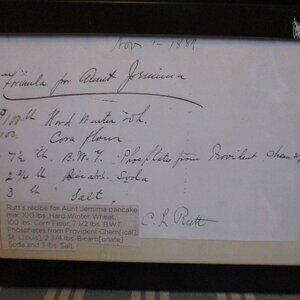 Nov 1 - 1889
Formula for Aunt Jemima
100 lb Hard Winter Wh.
100 Corn flour
7 1/2 lb. B.W.T. Phosphate from Provident Chem
2 3/4 lb Bicarb. Soda
3 lb Salt.
C. L. Rutt
Rutt's recipe for Aunt Jemima pancake
mix: 100 lbs. Hard Winter Wheat,
100 lbs. Corn Flour, 7 1/2 lbs. B.W.T.
Phosphates from Provident Chem[ical],
St. L[ouis], 2 3/4 lbs. Bicarb[onate]
Soda and 3 lbs. Salt.